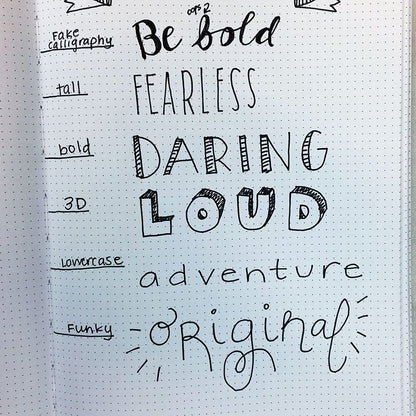 oops
Fake
calligraphy
Be bold
tall
FEARLESS
bold
DARING
3D
LOUD
lowercase
adventure
Funky
ORiginal